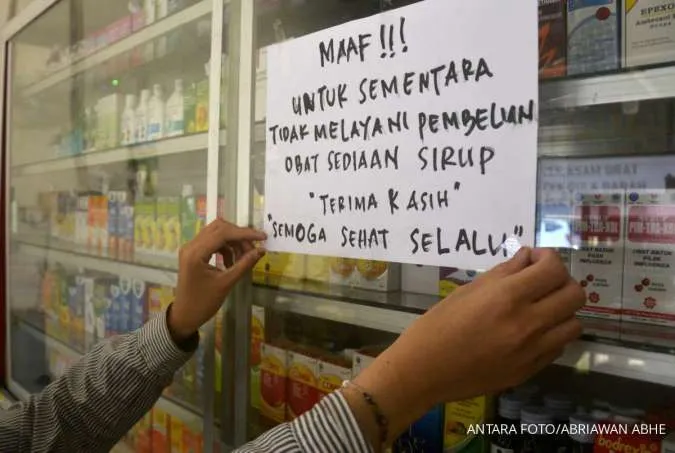 MAAF !!!
UNTUK SEMENTARA
TIDAK MELAYANI PEMBELIAN
OBAT SEDIAAN SIRUP
"TERIMA KASIH"
"SEMOGA SEHAT SELALU"
ANTARA FOTO/ABRIAWAN ABHE